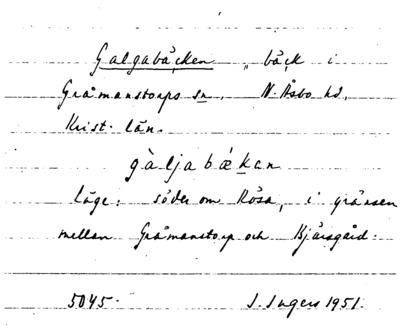 Galgabäcken, bäck i
Gråmanstorps sn, N. Åsbo hd,
Krist. län.
gàljabǽkan
läge: söder om Rösa, i gränsen
mellan Gråmanstorp och Bjärsgård.
5045. I. Ingers 1951.